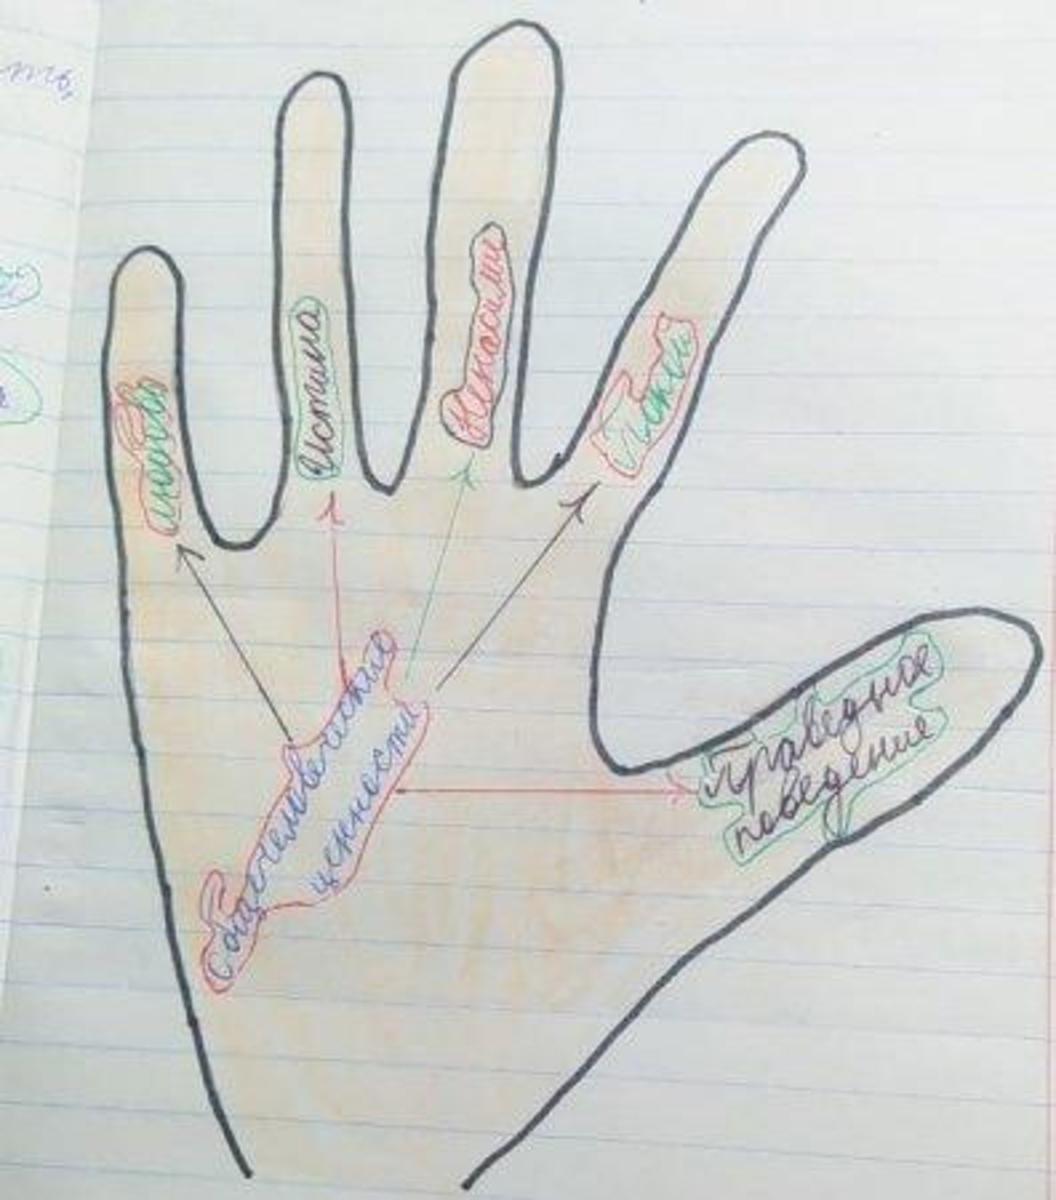 любовь
Истина
Ненасилие
Покой
Праведное
поведение
Общечеловеческие
ценности